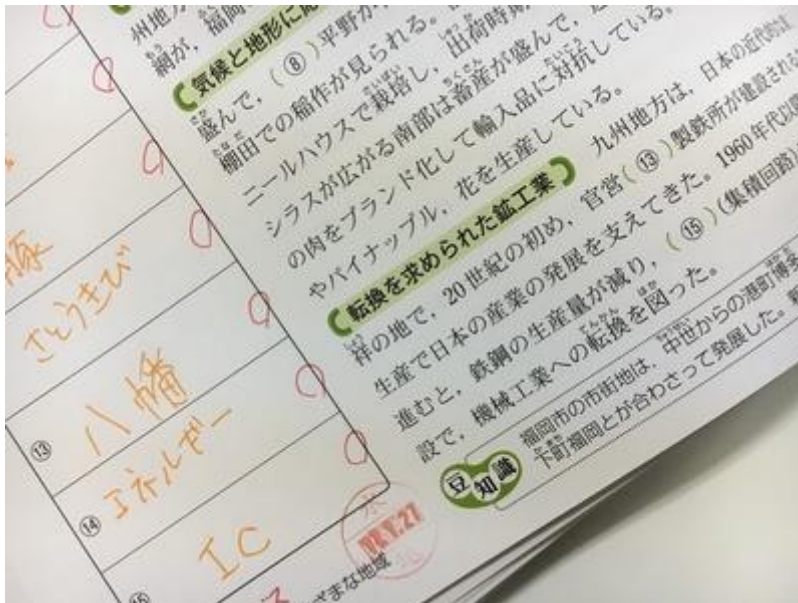 州地方
網が，福岡
気候と地形に応
盛んで，(⑧)平野が
棚田での稲作が見られる。
ニールハウスで栽培し，出荷時期
シラスが広がる南部は畜産が盛んで，
の肉をブランド化して輸入品に対抗している。
やパイナップル，花を生産している。
転換を求められた鉱工業
九州地方は，日本の近代的
祥の地で，20世紀の初め，官営(⑬)製鉄所が建設され
生産で日本の産業の発展を支えてきた。1960年代以
進むと，鉄鋼の生産量が減り，(⑮)(集積回路)
設で，機械工業への転換を図った。
豆知識
福岡市の市街地は，中世からの港町博多
下町福岡とが合わさって発展した。
豚
さとうきび
⑬ 八幡
⑭ エネルギー
⑮ IC
ざまな地域